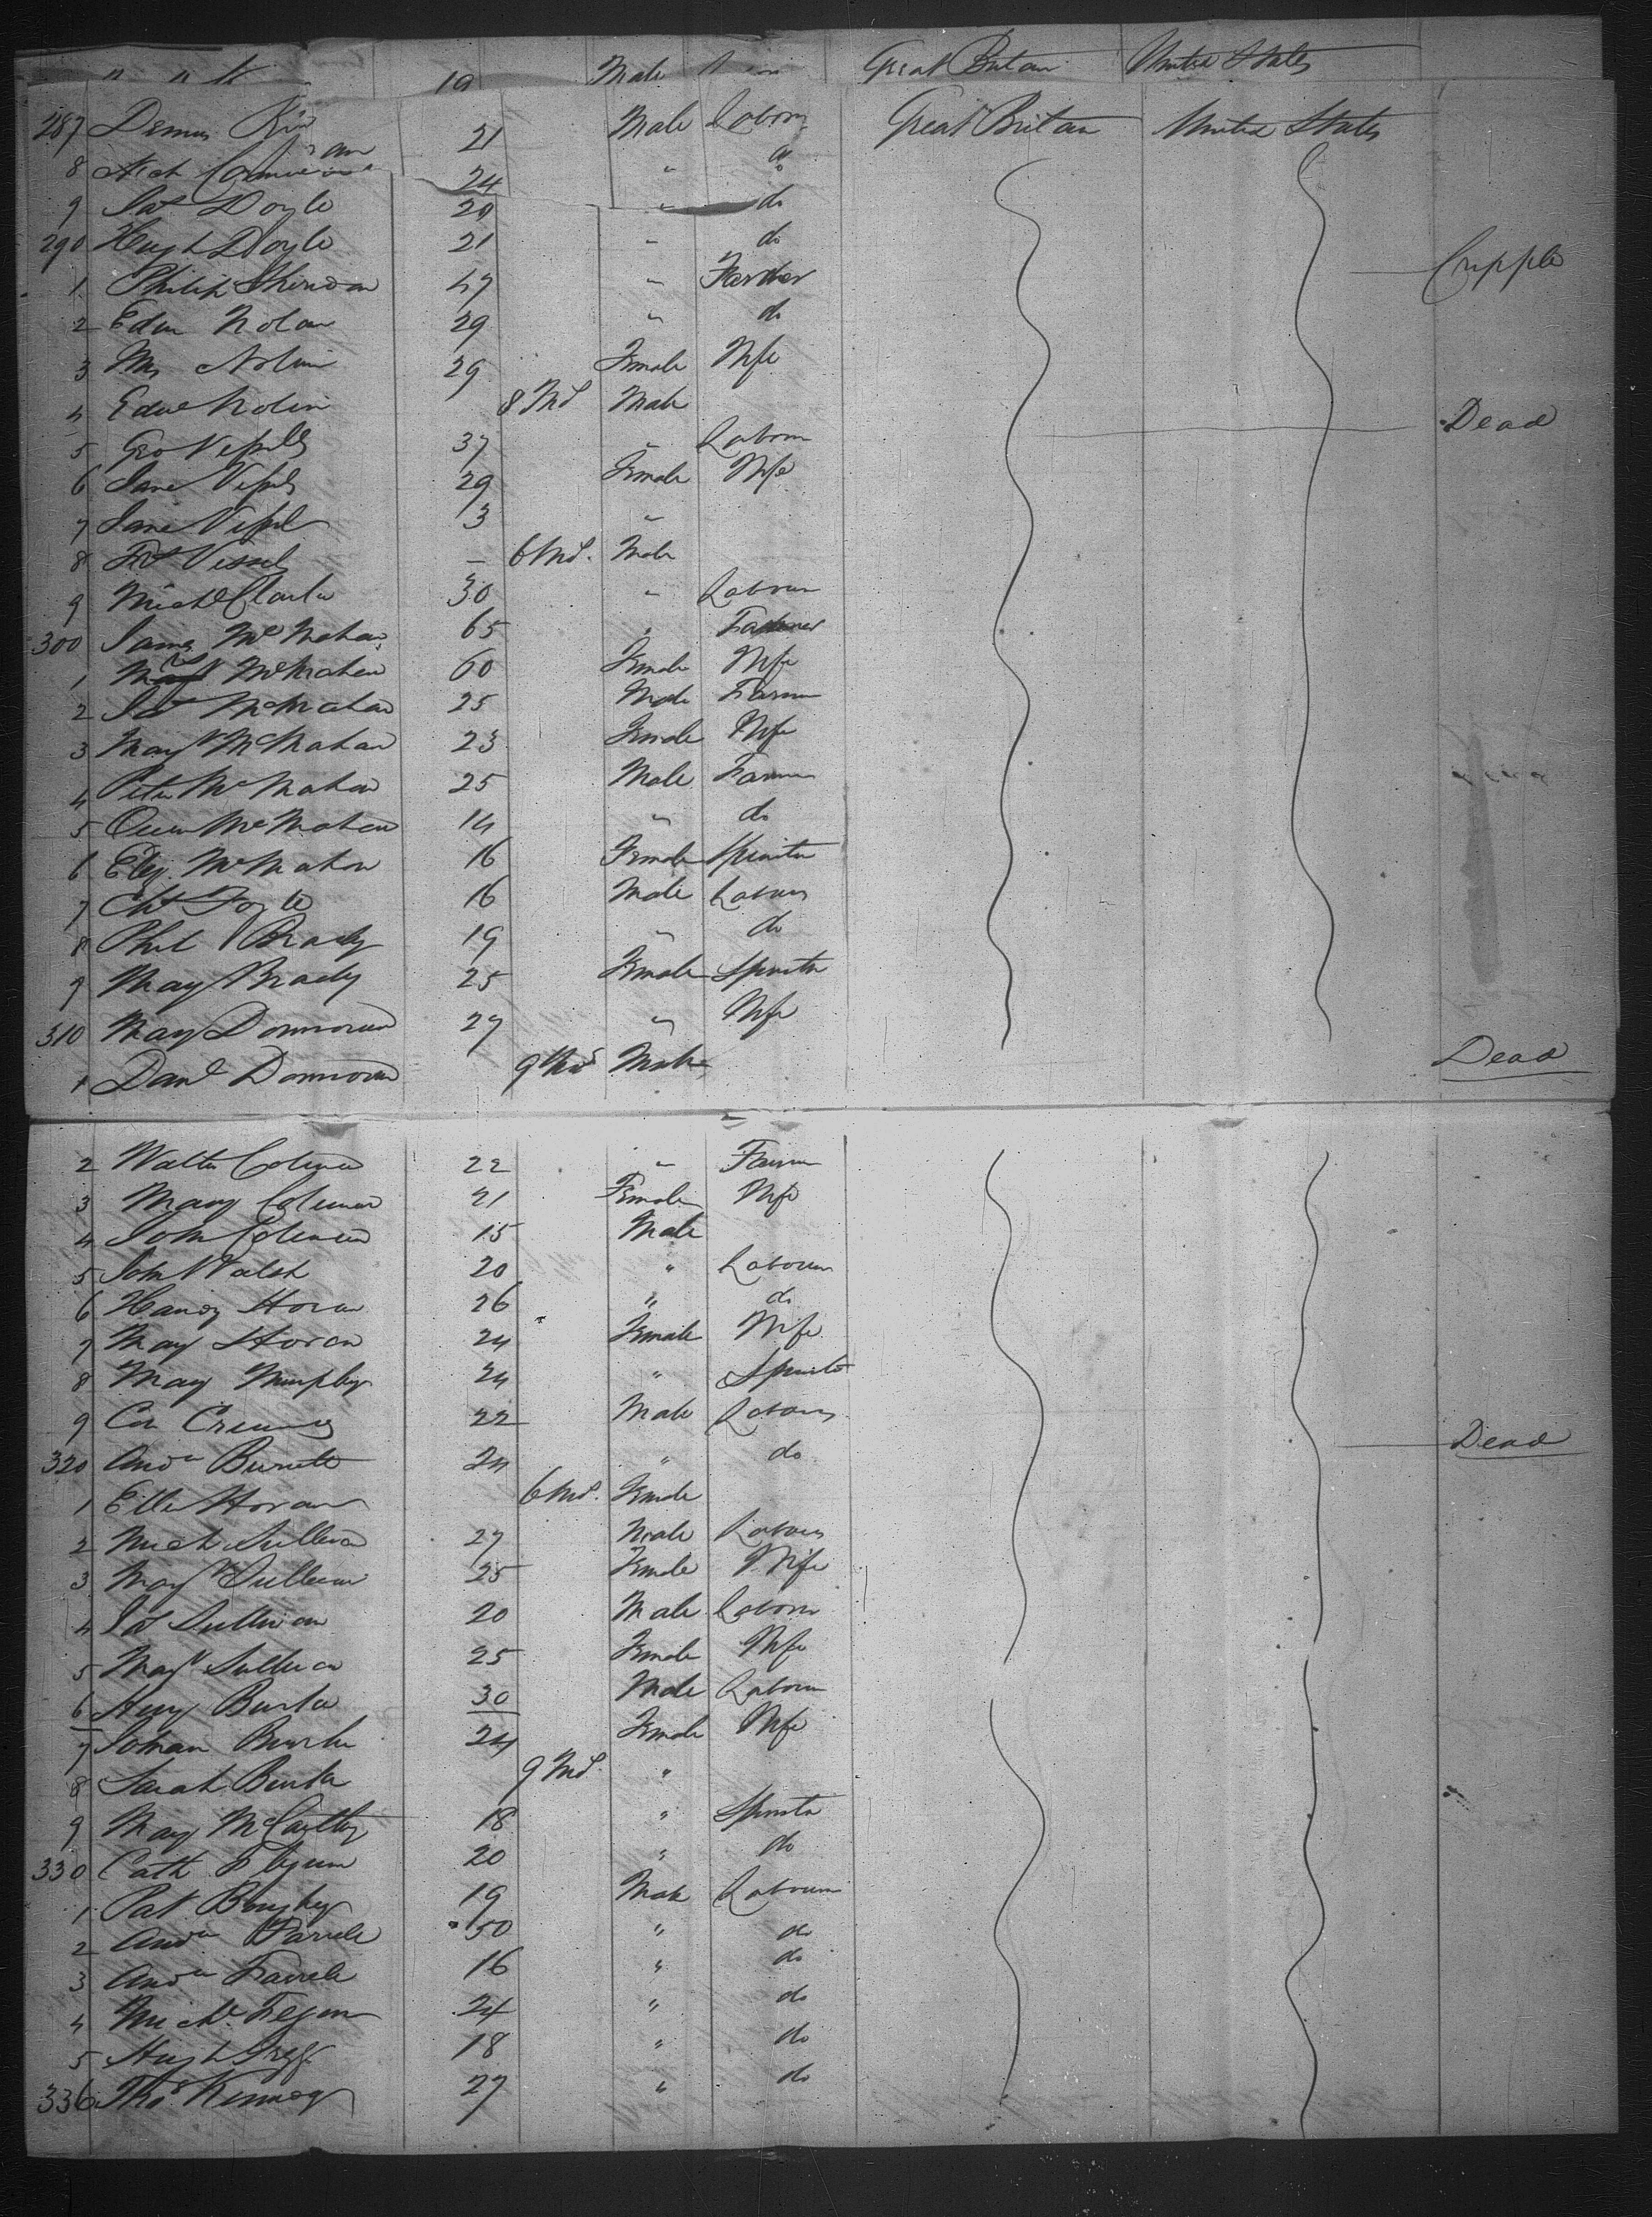 19 Male Great Britain United States
287 Dennis 21 Male Labour Great Britain United States
8 Mich 24 " do
9 Pat Doyle 20 " do
290 Hugh Doyle 21 " do
1 Philip Sheridan 47 " Farmer Cripple
2 Edw Nolan 29 " do
3 Mrs Nolan 29 Female Wife
4 Edwd Nolin 8 Ms Male Dead
5 Geo Vessels 37 " Labour
6 Jane Vessels 29 Female Wife
7 Jane Vessel 3 "
8 Vessels – 6 Ms. Male
9 Michl Clarke 30 " Labour
300 James McMahan 65 " Farmer
1 McMahan 60 Female Wife
2 Pat McMahan 25 Male Farmer
3 Margt McMahan 23 Female Wife
4 Peter McMahan 25 Male Farmer
5 Owen McMahan 14 " do
6 Eliz. McMahon 16 Female Spinster
7 16 Male Labour
8 Phil Brady 19 " do
9 Mary Brady 25 Female Spinster
310 Mary Donnovan 27 " Wife
1 Danl Donnovan 9 Ms Male Dead
2 Walter Coleman 22 " Farmer
3 Mary Coleman 21 Female Wife
4 John Coleman 15 Male
5 John Walsh 20 " Labourer
6 Horan 26 " do
7 Mary Horan 24 Female Wife
8 Mary Murphy 24 " Spinster
9 22 Male Labour
320 Andw 24 " do Dead
1 Ellen Horan 6 Ms. Female
2 Mich Sullivan 27 Male Labour
3 Margt Sullivan 25 Female Wife
4 Pat Sullivan 20 Male Labour
5 Margt Sullivan 25 Female Wife
6 Burke 30 Male Labour
7 Johan Burke 24 Female Wife
8 Sarah Burke 9 Ms. "
9 Mary McCarthy 18 " Spinster
330 Cath 20 " do
1 Pat 19 Male Labourer
2 Andw Farrele 50 " do
3 Andw Farrele 16 " do
4 Michl. Fegan 24 " do
5 Hugh 18 " do
336 Thos 27 " do